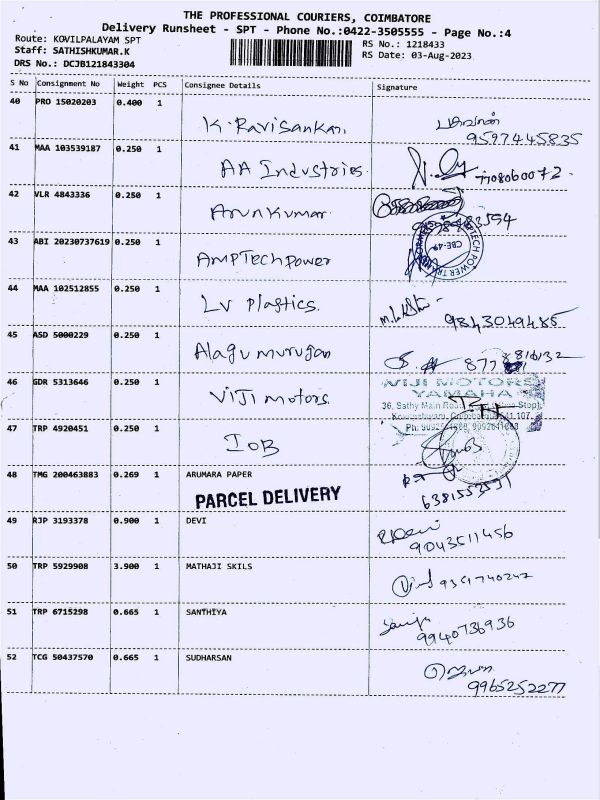 THE PROFESSIONAL COURIERS, COIMBATORE
Delivery Runsheet - SPT - Phone No.:0422-3505555 - Page No.:4
Route: KOVILPALAYAM SPT
RS No.: 1218433
Staff: SATHISHKUMAR.K
RS Date: 03-Aug-2023
DRS No.: DCJB121843304
S No Consignment No Weight PCS Consignee Details Signature
40 PRO 15020203 0.400 1
K. Ravisankar.
9597445835
41 MAA 103539187 0.250 1
AA Industries.
7708060072.
42 VLR 4843336 0.250 1
Arunkumar.
43 ABI 20230737619 0.250 1
CBE-49
AMPTechpower
44 MAA 102512855 0.250 1
LV Plastics.
9843049485
45 ASD 5000229 0.250 1
Alagu murugan
46 GDR 5313646 0.250 1
VIJI MOTORS
YAMAHA
VIJI Motors.
36, Sathy Main
47 TRP 4920451 0.250 1
IOB
48 TMG 200463883 0.269 1 ARUMARA PAPER
PARCEL DELIVERY
6381553531
49 RJP 3193378 0.900 1 DEVI
9043511456
50 TRP 5929908 3.900 1 MATHAJI SKILS
9361740247
51 TRP 6715298 0.665 1 SANTHIYA
9940736936
52 TCG 50437570 0.665 1 SUDHARSAN
9965252277